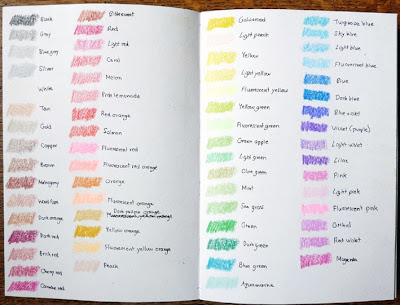 Black
Grey
Blue grey
Silver
White
Tan
Gold
Copper
Brown
Mahogany
Dark orange
Dark red
Brick red
Cherry red
Carmine red
Bittersweet
Red
Light red
Coral
Melon
Pink lemonade
Red orange
Salmon
Fluorescent red
Fluorescent red orange
Orange
Fluorescent orange
Dark yellow orange
Yellow orange
Fluorescent yellow orange
Peach
Goldenrod
Light peach
Yellow
Light yellow
Fluorescent yellow
Yellow green
Fluorescent green
Green apple
Light green
Olive green
Mint
Sea green
Green
Dark green
Blue green
Aquamarine
Turquoise blue
Sky blue
Light blue
Fluorescent blue
Blue
Dark blue
Blue violet
Violet (purple)
Light violet
Lilac
Pink
Light pink
Fluorescent pink
Orchid
Red violet
Magenta